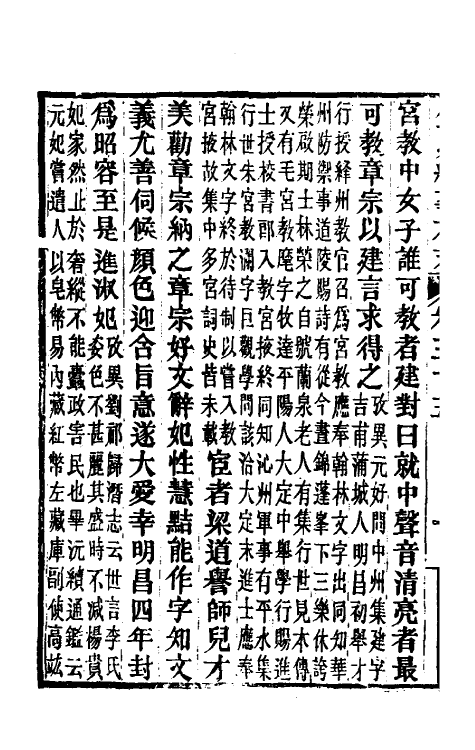 宮教中女子誰可教者建對曰就中聲音清亮者最
可教章宗以建言求得之攷異元好問中州集建字
吉甫蒲城人明昌初舉才
行授絳州教官召爲宮教應奉翰林文字出同知華
州防禦事道陵賜詩有從今晝錦蓬峯下三樂休誇
榮啟期士林榮之自號蘭泉老人有集行世見本傳
又有毛宮教麾字牧達平陽人大定中舉學行賜進
士授校書郎入教宮掖終同知沁州軍事有平水集
行世朱宮教瀾字巨觀學問該洽大定末進士應奉
翰林文字終於待制以嘗入教
宮掖故集中多宮詞史皆未載
宦者梁道譽師兒才
美勸章宗納之章宗好文辭妃性慧黠能作字知文
義尤善伺候顏色迎合旨意遂大愛幸明昌四年封
爲昭容至是進淑妃攷異劉祁歸潛志云世言李氏
姿色不甚麗其盛時不減楊貴
妃家然止於奢縱不能蠹政害民也畢沅續通鑑云
元妃嘗遣人以皂幣易內藏紅幣左藏庫副使高竑